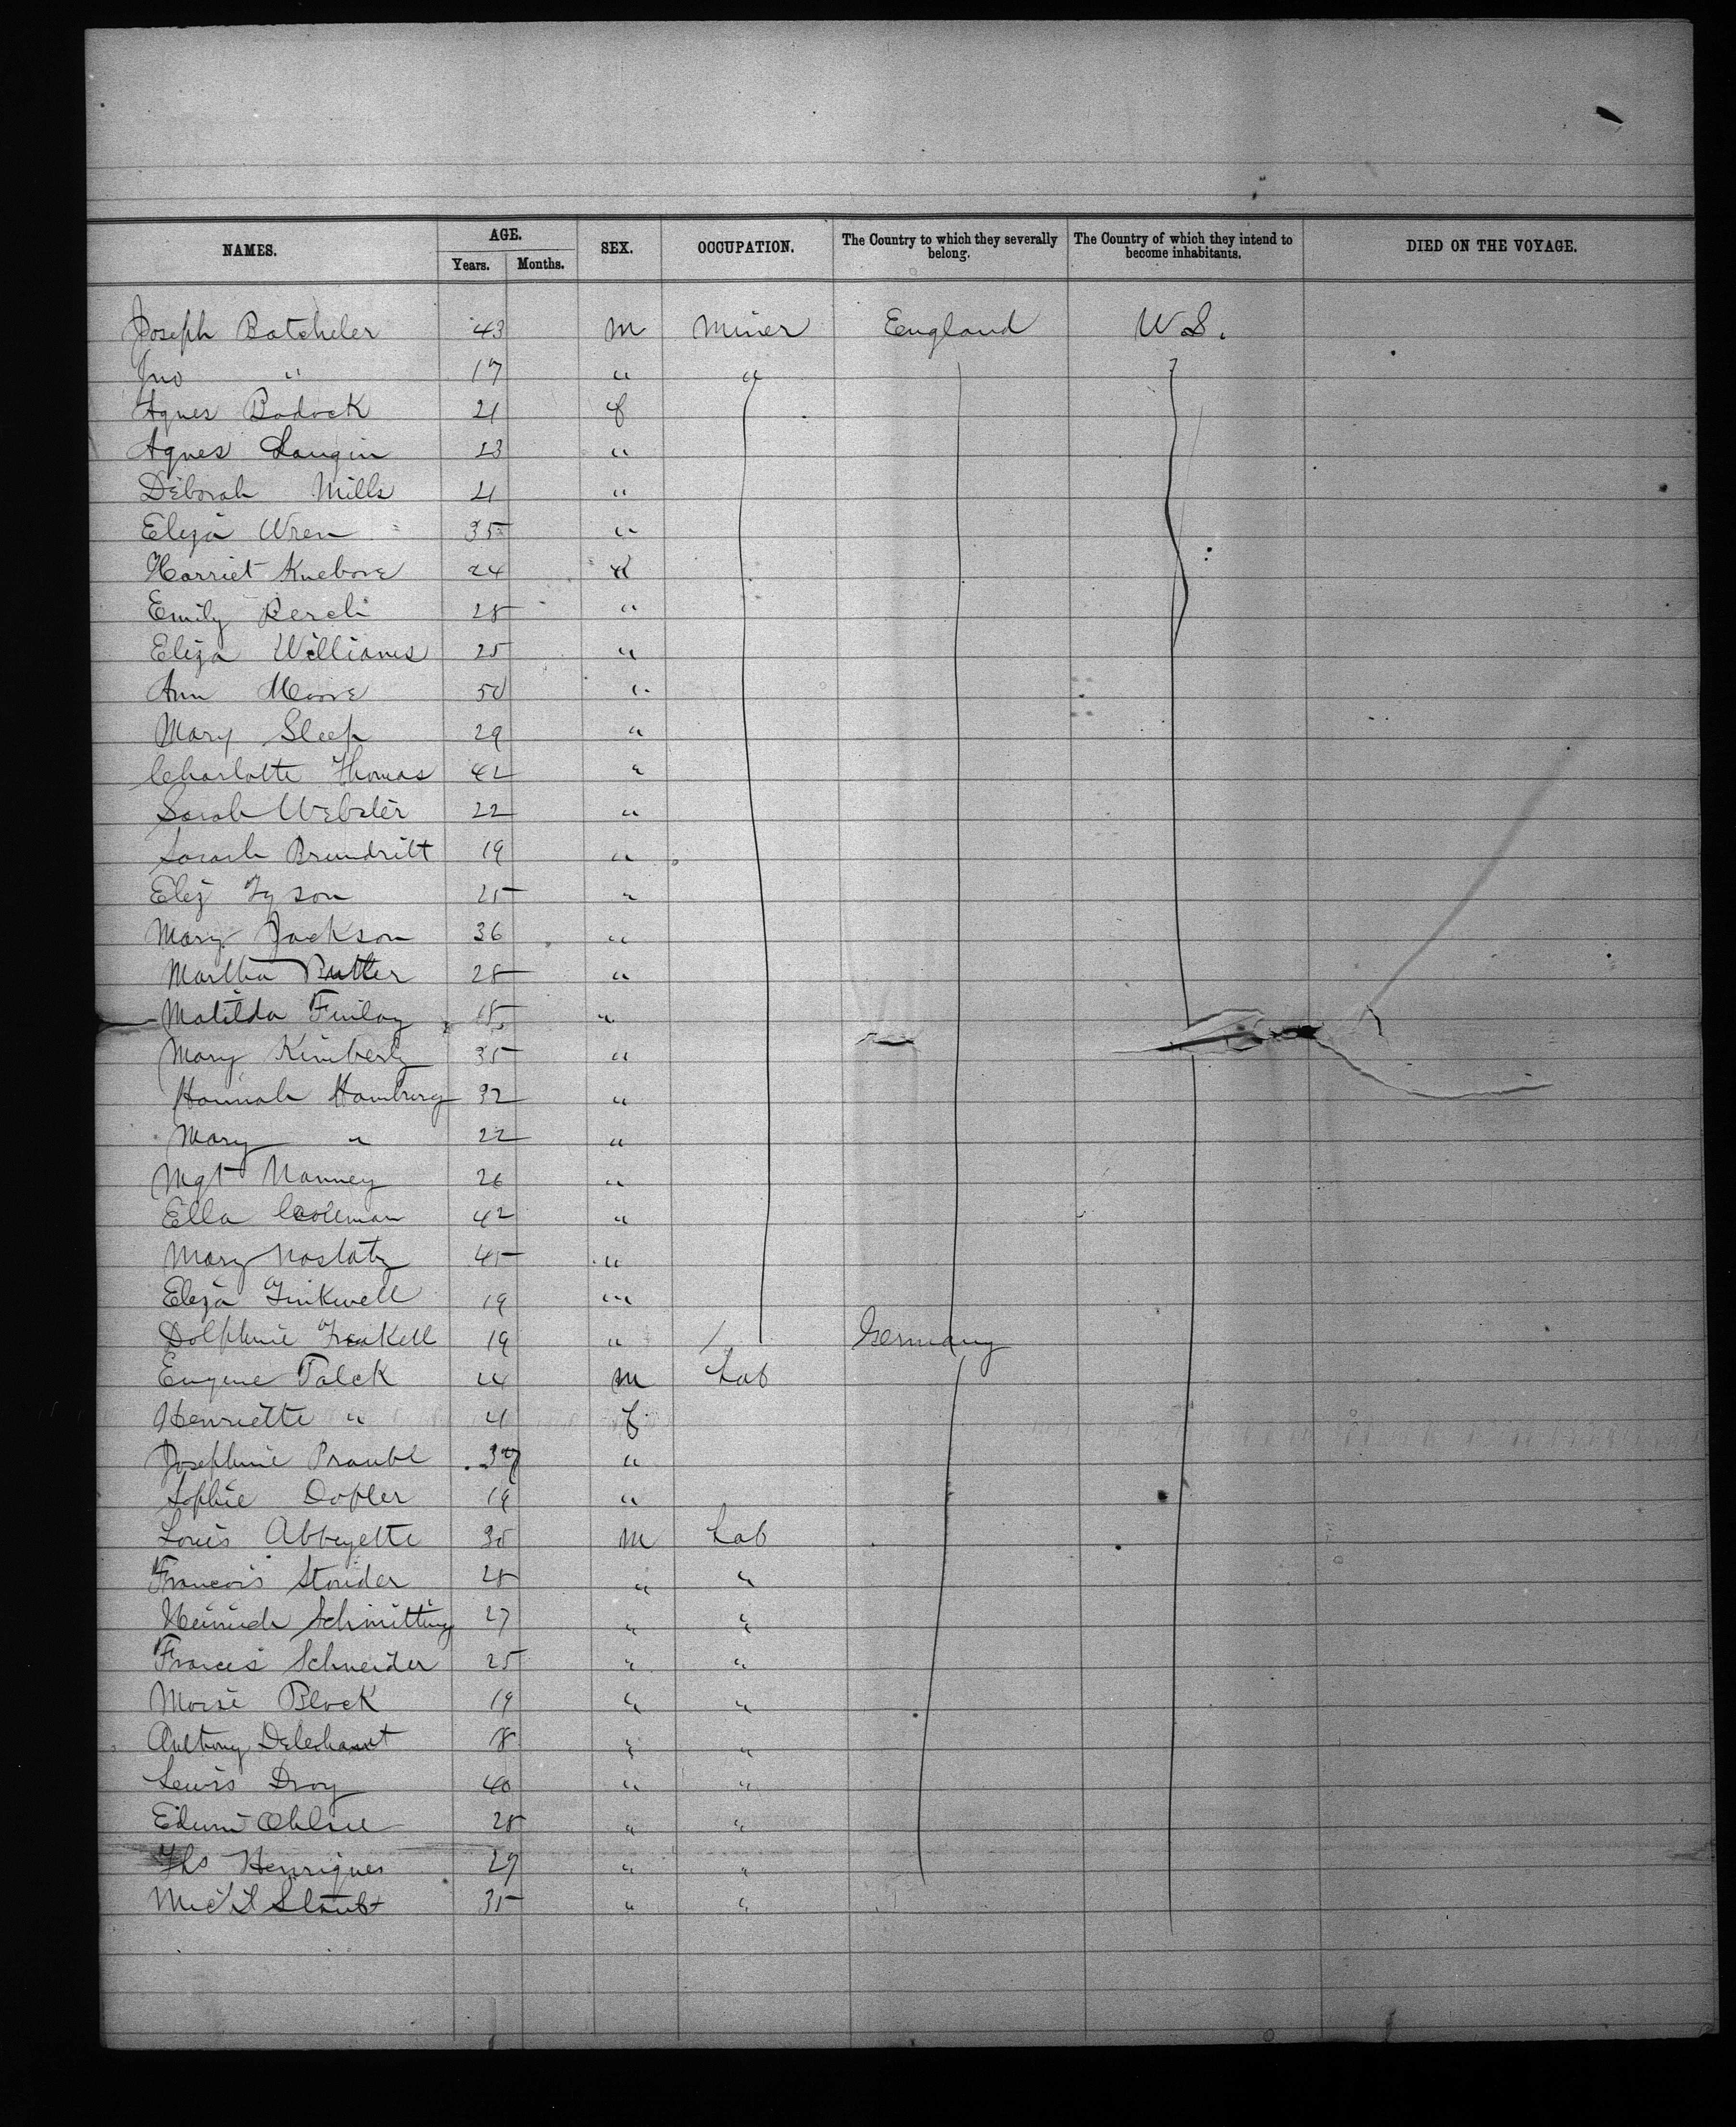 NAMES. AGE. SEX. OCCUPATION. The Country to which they severally belong. The Country of which they intend to become inhabitants. DIED ON THE VOYAGE.
Years. Months.
Joseph Batcheler 43 m Miner England U.S.
Jno " 17 " "
Agnes Badock 21 f
Agnes 23 "
Deborah Mills 21 "
Eliza Wren 35 "
Harriet 24 "
Emily 28 "
Eliza Williams 25 "
Ann Moore 50 "
Mary Sleep 29 "
Charlotte Thomas 42 "
Sarah Webster 22 "
Sarah Brundritt 19 "
Eliz Tyson 25 "
Mary Jackson 36 "
Martha Rutter 28 "
Matilda Finlay "
Mary Kimberly 35 "
Hannah Hamburg 32 "
Mary " 22 "
Mgt Nanney 26 "
Ella Coleman 42 "
Mary 45 "
Eliza Tinkwell 19 "
Dolphine 19 " Germany
Eugene Talek 24 m Lab
Henriette " 21 f
Josephine "
Sophie Dopler 19 "
Louis Abbeyette 30 m Lab
Francois Stouder 28 " "
Heinrich Schmitting 27 " "
Francis Schneider 25 " "
Moise Block 19 " "
Anthony " "
Lewis Droy 40 " "
Edwin 28 " "
Henriques 29 " "
Mich'l Staub 35 " "